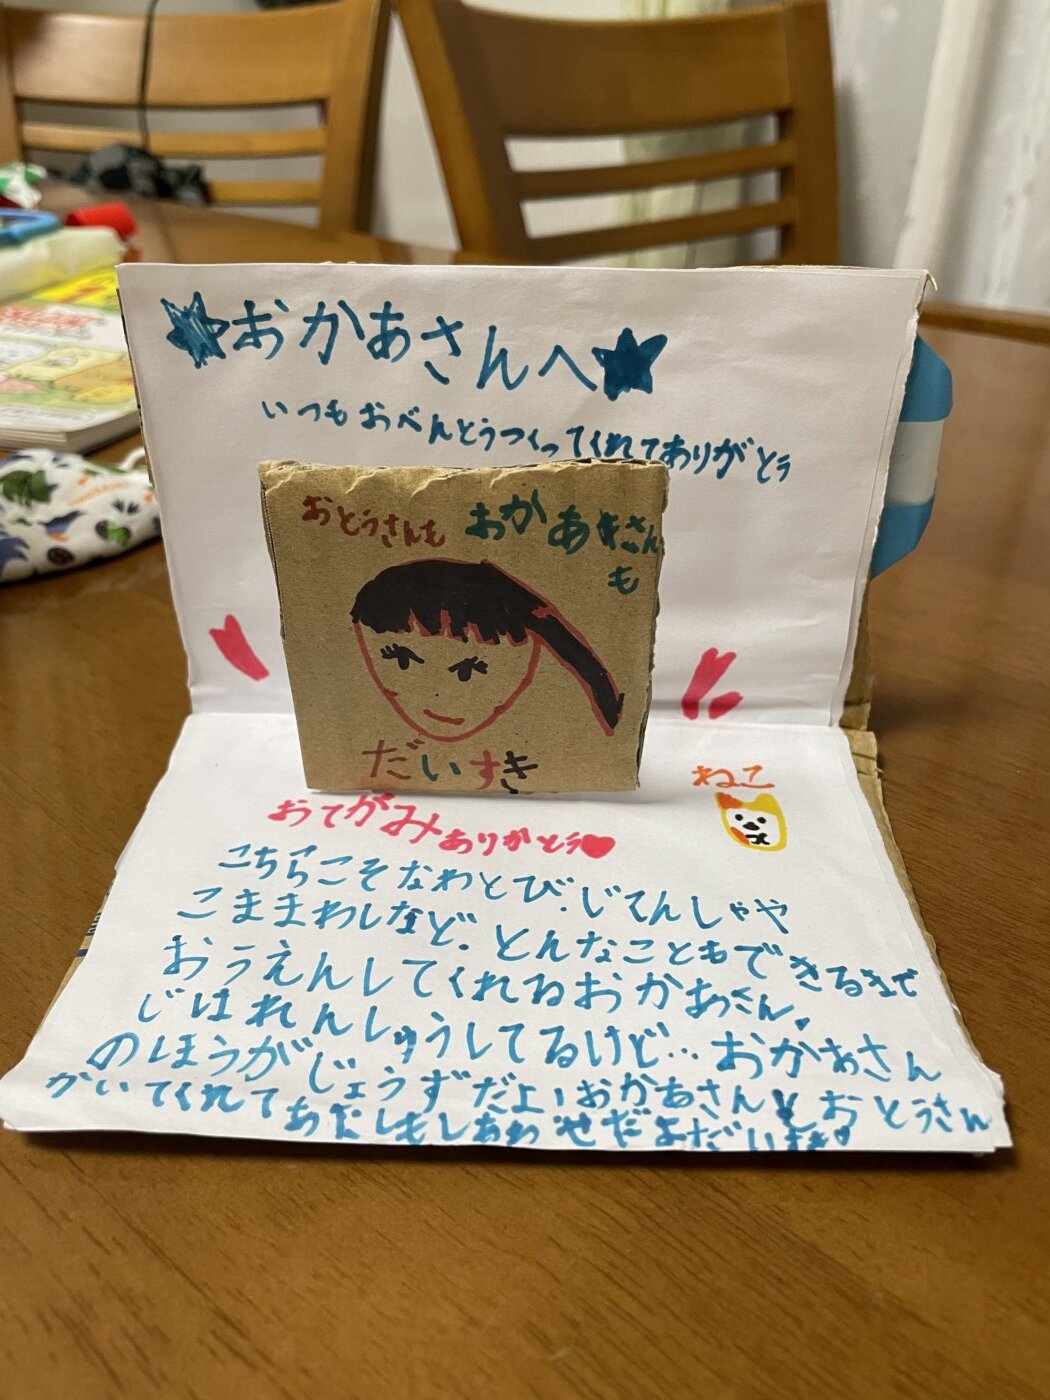 おかあさんへ
いつもおべんとうつくってくれてありがとう
おとうさんも おかあさん
も
だいすき
ねこ
おてがみありがとう
こちらこそなわとび.じてんしゃや
こままわしなど.とんなこともできるまで
おうえんしてくれるおかあさん.
じはれんしゅうしてるけど…おかあさん
のほうがじょうずだよ!おかあさんとおとうさん
かいてくれてあたしもしあわせだよだいすき